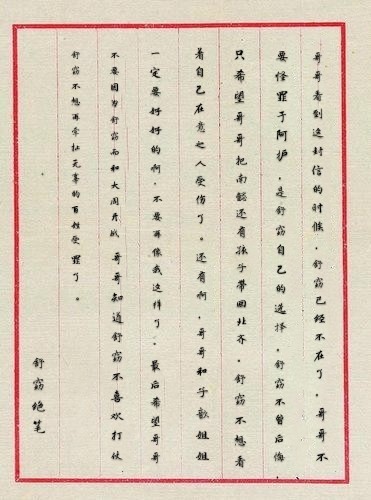 哥哥看到这封信的时候，舒窈已经不在了，哥哥不
要怪罪于阿护，是舒窈自己的选择，舒窈不曾后悔
只希望哥哥把南懿还有孩子带回北齐，舒窈不想看
着自己在意之人受伤了。还有啊，哥哥和子歆姐姐
一定要好好的啊，不要再像我这样了。最后希望哥哥
不要因为舒窈而和大周开战 哥哥知道舒窈不喜欢打仗
舒窈不想再牵扯无辜的百姓受罪了。
舒窈绝笔